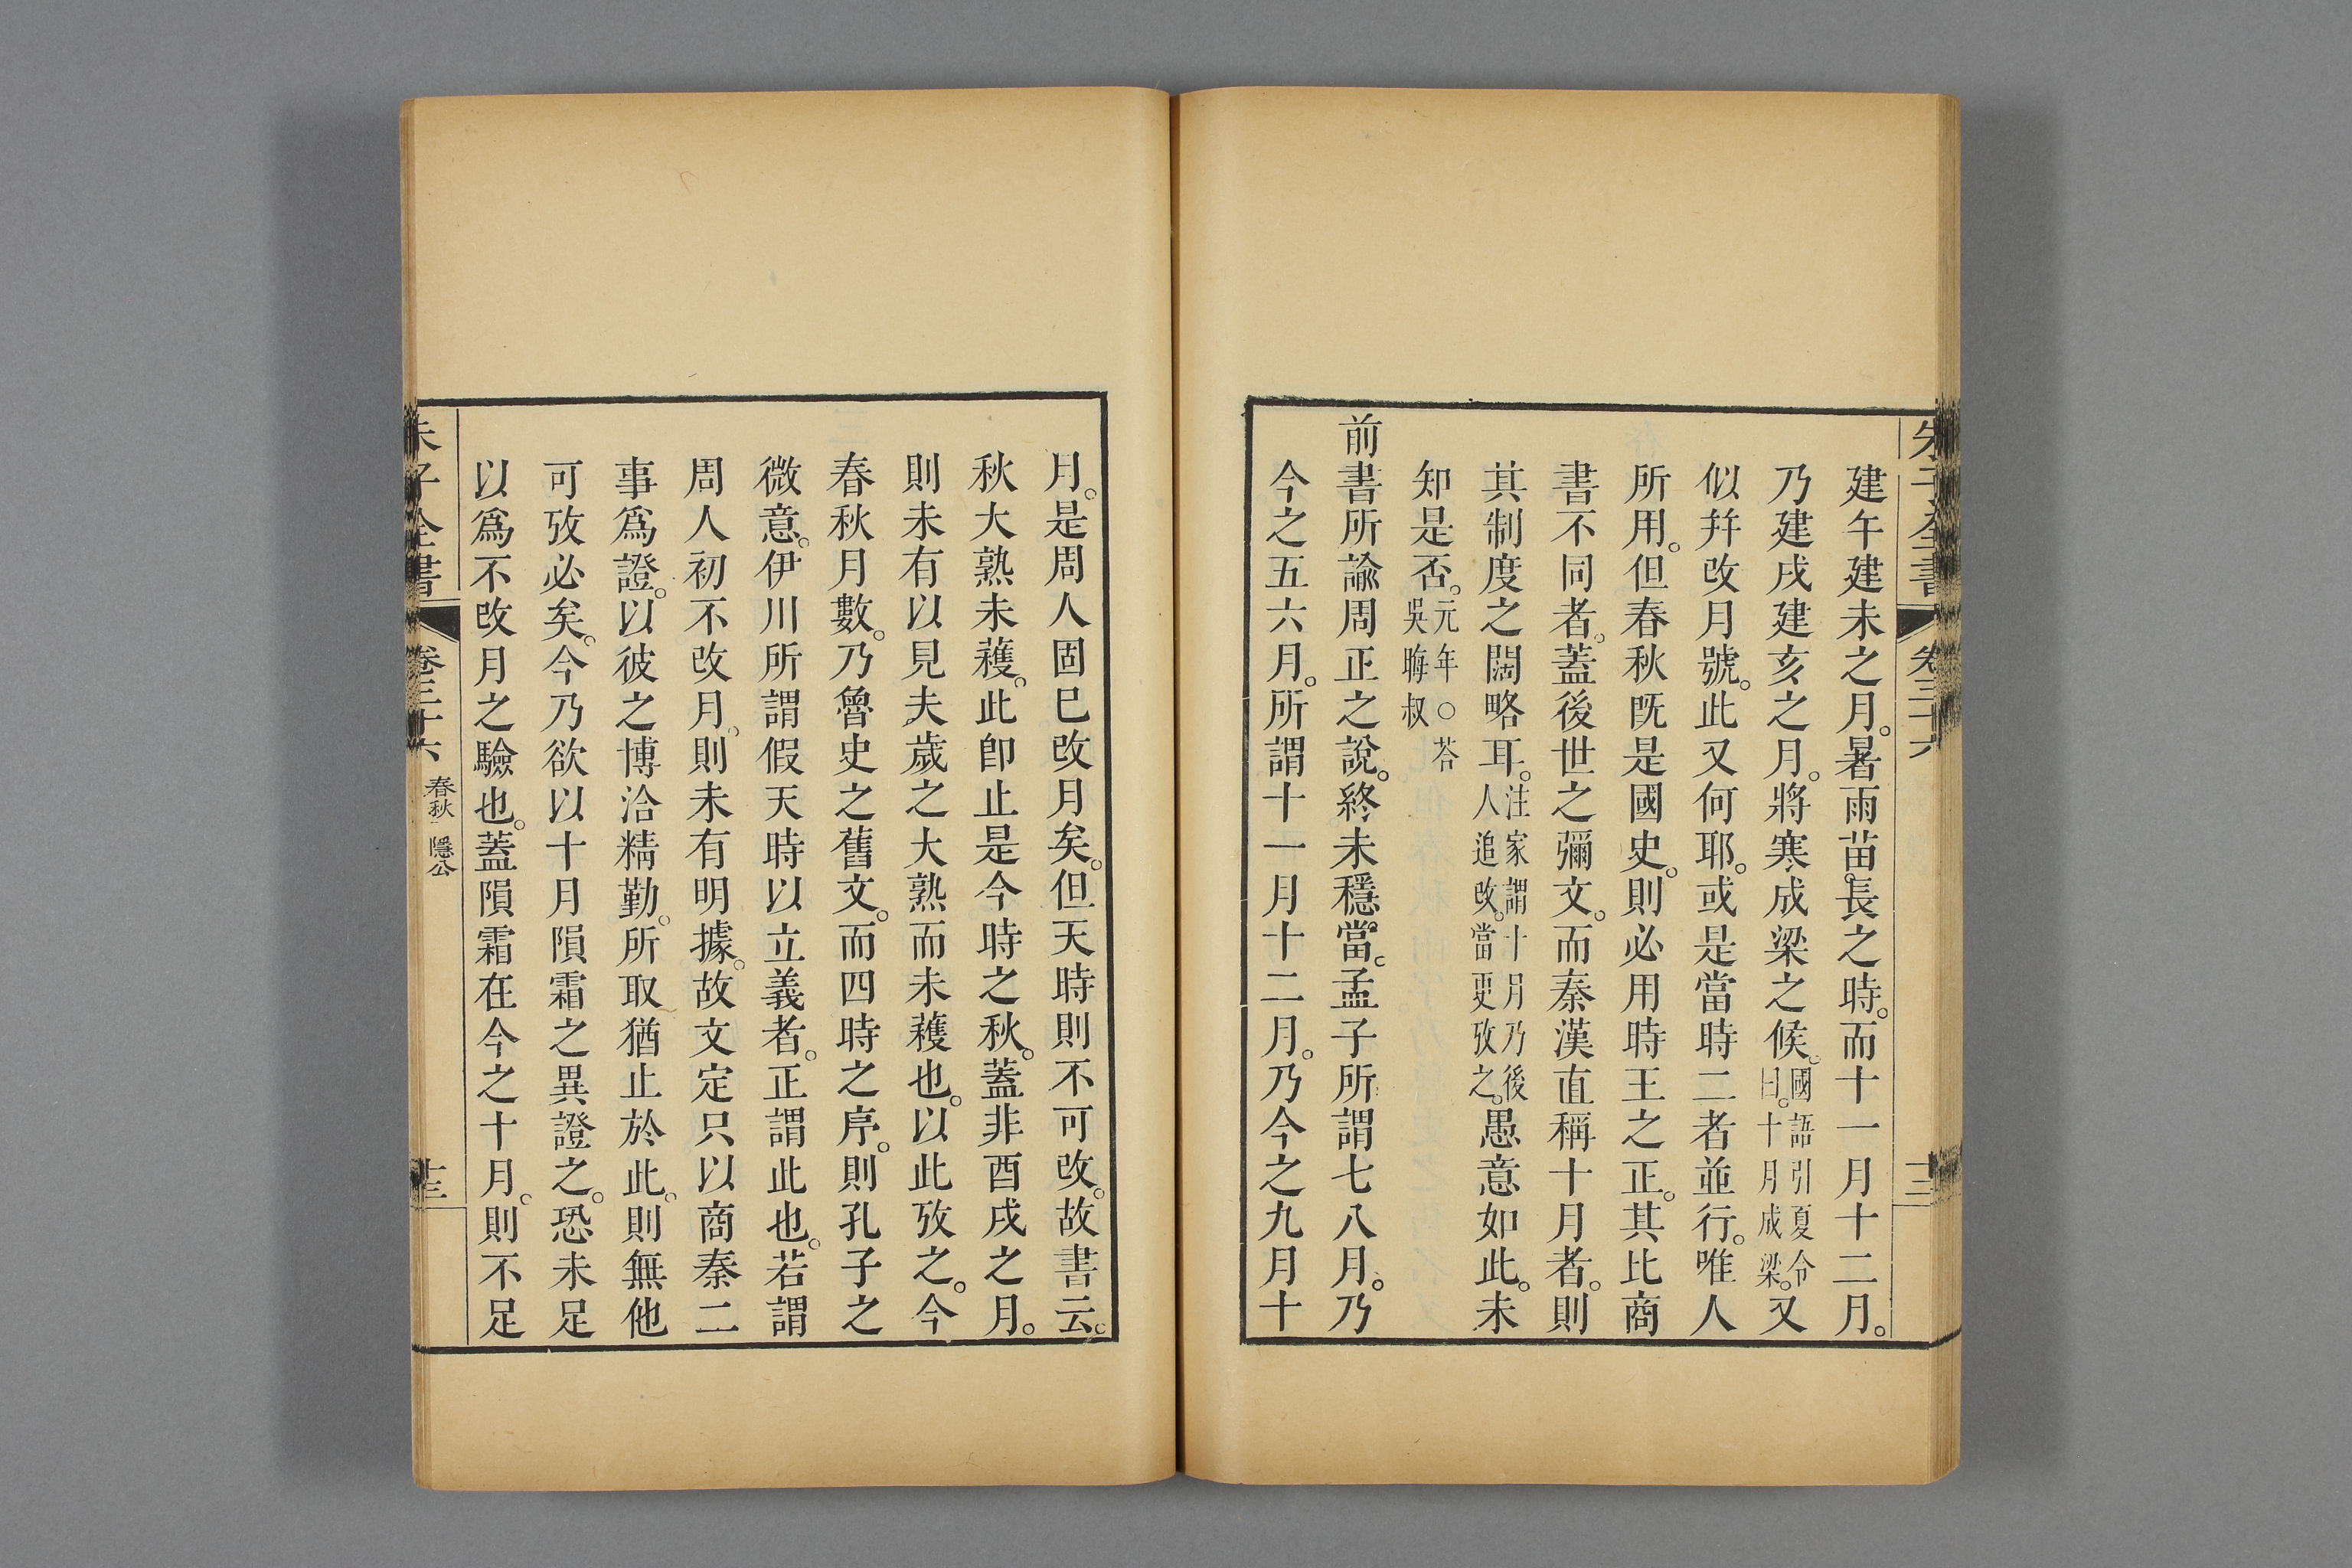 朱子全書 卷三十六 十三
建午建未之月。暑雨苗長之時。而十一月十二月。
乃建戌建亥之月。將寒成梁之候。國語引夏令曰。十月成梁。又
似幷改月號。此又何耶。或是當時二者並行。唯人
所用。但春秋旣是國史。則必用時王之正。其比商
書不同者。蓋後世之彌文。而秦漢直稱十月者。則
其制度之闊略耳。注家謂十月乃後人追改。當更攷之。愚意如此。未
知是否。元年○荅吳晦叔
前書所諭周正之說。終未穩當。孟子所謂七八月。乃
今之五六月。所謂十一月十二月。乃今之九月十
月。是周人固已改月矣。但天時則不可改。故書云。
秋大熟未穫。此卽止是今時之秋。蓋非酉戌之月。
則未有以見夫歲之大熟而未穫也。以此攷之。今
春秋月數。乃魯史之舊文。而四時之序。則孔子之
微意。伊川所謂假天時以立義者。正謂此也。若謂
周人初不改月。則未有明據。故文定只以商秦二
事爲證。以彼之博洽精勤。所取猶止於此。則無他
可攷必矣。今乃欲以十月隕霜之異證之。恐未足
以爲不改月之驗也。蓋隕霜在今之十月。則不足
朱子全書 卷三十六 春秋 隱公 十三